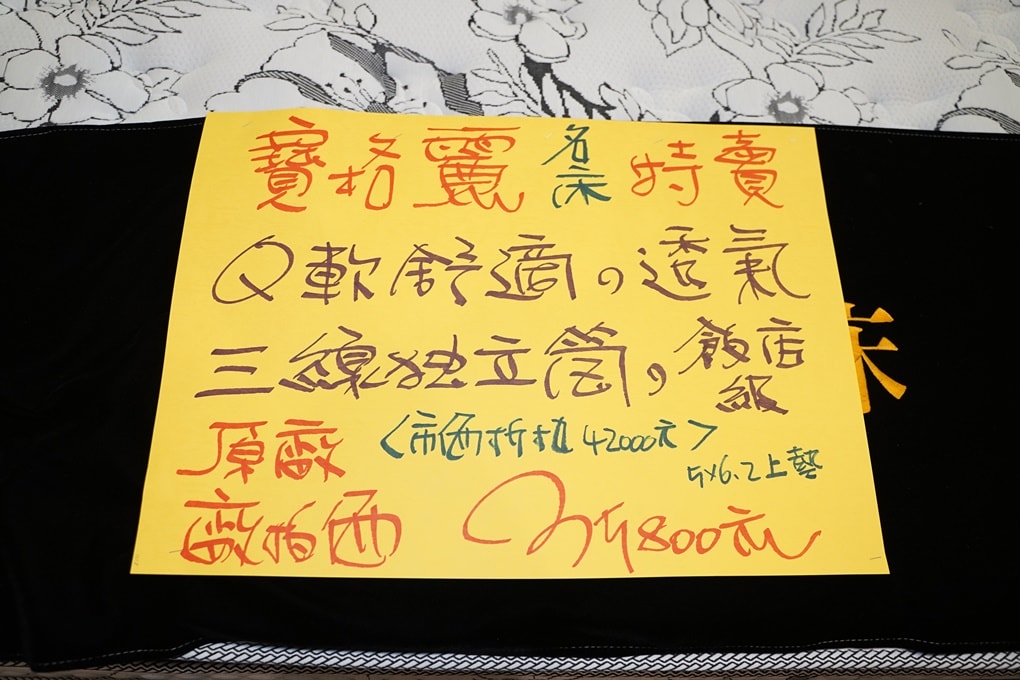 寶格麗 名床 特賣
Q軟舒適の透氣
三線独立筒の飯店級
原廠 <市価折扣42000元>
5x6.2上
廠拍価